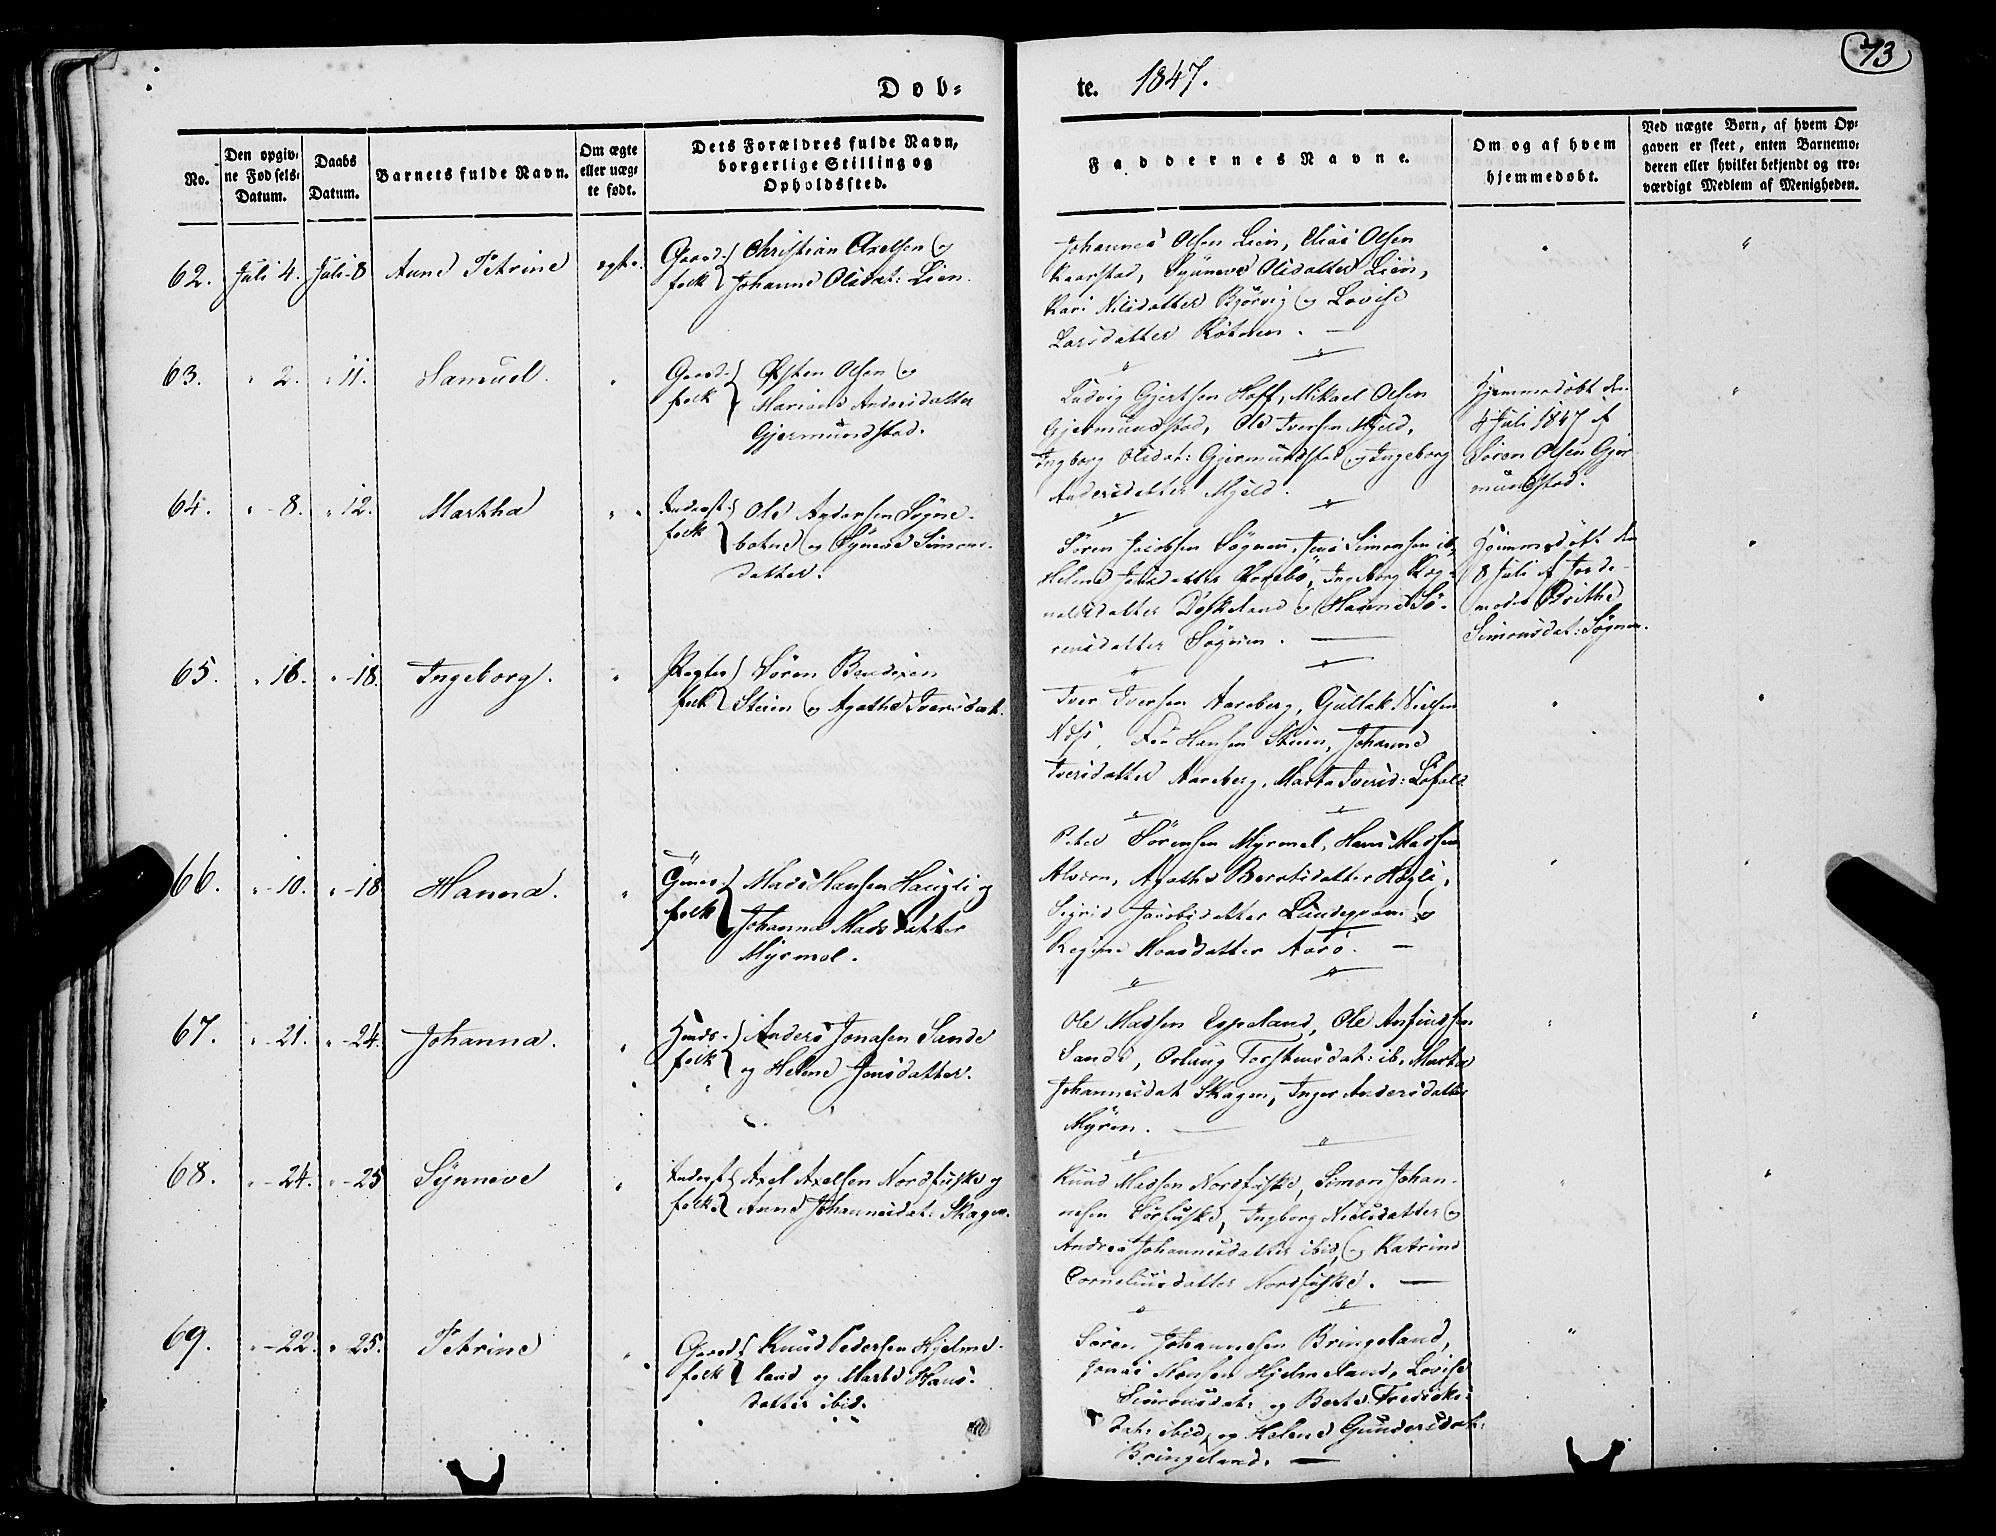 73
Døb-
te. 1847.
No.
Den opgiv-
ne Fødsels-
Datum.
Daabs
Datum.
Barnets fulde Navn.
Om ægte
eller uæg-
te født.
Dets Forældres fulde Navn,
borgerlige Stilling og
Opholdssted.
Faddernes Navne.
Om og af hvem
hjemmedøbt.
Ved uægte Børn, af hvem Op-
gaven er skeet, enten Barnemo-
deren eller hvilket bekjendt og tro-
værdigt Medlem af Menigheden.
62. Juli 4. Juli 8 Anne Petrine ægte.
Gaard-
folk
Christian Axelsen og
Johanne Olsdat: Lien.
Johannes Olsen Lien, Elias Olsen
Kaarstad, Synneve Olsdatter Lien,
Kari Nilsdatter Bjørvig og Lovise
Larsdatter
63. " 2. " 11. Samuel. "
Gaard-
folk
Østen Olsen og
Mariane Andersdatter
Gjermundstad.
Ludvig Gjertsen Hoff, Mikael Olsen
Gjermundstad, Ole Iversen Mjeld,
Ingborg Olsdat: Gjermundstad og Ingeborg
Andersdatter Mjeld.
Hjemmedøbt den
4 Juli 1847 af
Søren Olsen Gjer-
mundstad.
64. " 8. " 12. Martha "
Inderst-
folk
Ole Andersen Søgne-
botne og Synneve Simons-
datter.
Søren Jacobsen Søgnen, Jens Simonsen ib,
Helene Jensdatter Ingeborg Rog-
naldsdatter Døskeland og Hanne Sø-
rensdatter Søgnen.
Hjemmedøbt den
8 Juli af Jorde-
moder Brithe
Simonsdat: Søgnen.
65. " 16. " 18. Ingeborg. "
folk
Søren Bendixen
Steien og Agathe Iversdat.
Iver Iversen Aareberg, Gullak Nielsen
Hansen Steien, Johanne
Iversdatter Aareberg, Marta Iversd:
66. " 10. " 18 Hanna. "
folk
Mads Hansen Haugli og
Johanne Madsdatter
Myrmel.
Peter Sørensen Myrmel, Hans Madsen
Alværn, Agathe Berntsdatter
Sigrid Jacobsdatter og
Regine Monsdatter Aarø.
67. " 21. " 24. Johanna. "
Huus-
folk
Anders Jonasen Sande
og Helene Jonsdatter.
Ole Madsen Espeland, Ole Anfindsen
Sande, Orlaug Torstensdat: ib, Marta
Johannesdat Skagen, Inger Andersdatter
Myren.
68. " 24. " 25 Synneve "
Inderst
folk
Axel Axelsen Nordfuske og
Anne Johannesdat: Skagen.
Knud Madsen Nordfuske, Simon Johan-
nesen Sørfuske, Ingborg Nielsdatter og
Andrea Johannesdatter ibid, og Katrine
Corneliusdatter Nordfuske.
69. " 22. " 25. Petrine "
Gaard-
folk
Knud Pedersen Hjelme-
land og Marte Hans-
datter ibid.
Søren Johannesen Bringeland,
Jonas Hansen Hjelmeland, Lovise
Simonsdat: og Berte Fredriks-
Dat: ibid, og Helene Gundersdat:
Bringeland.